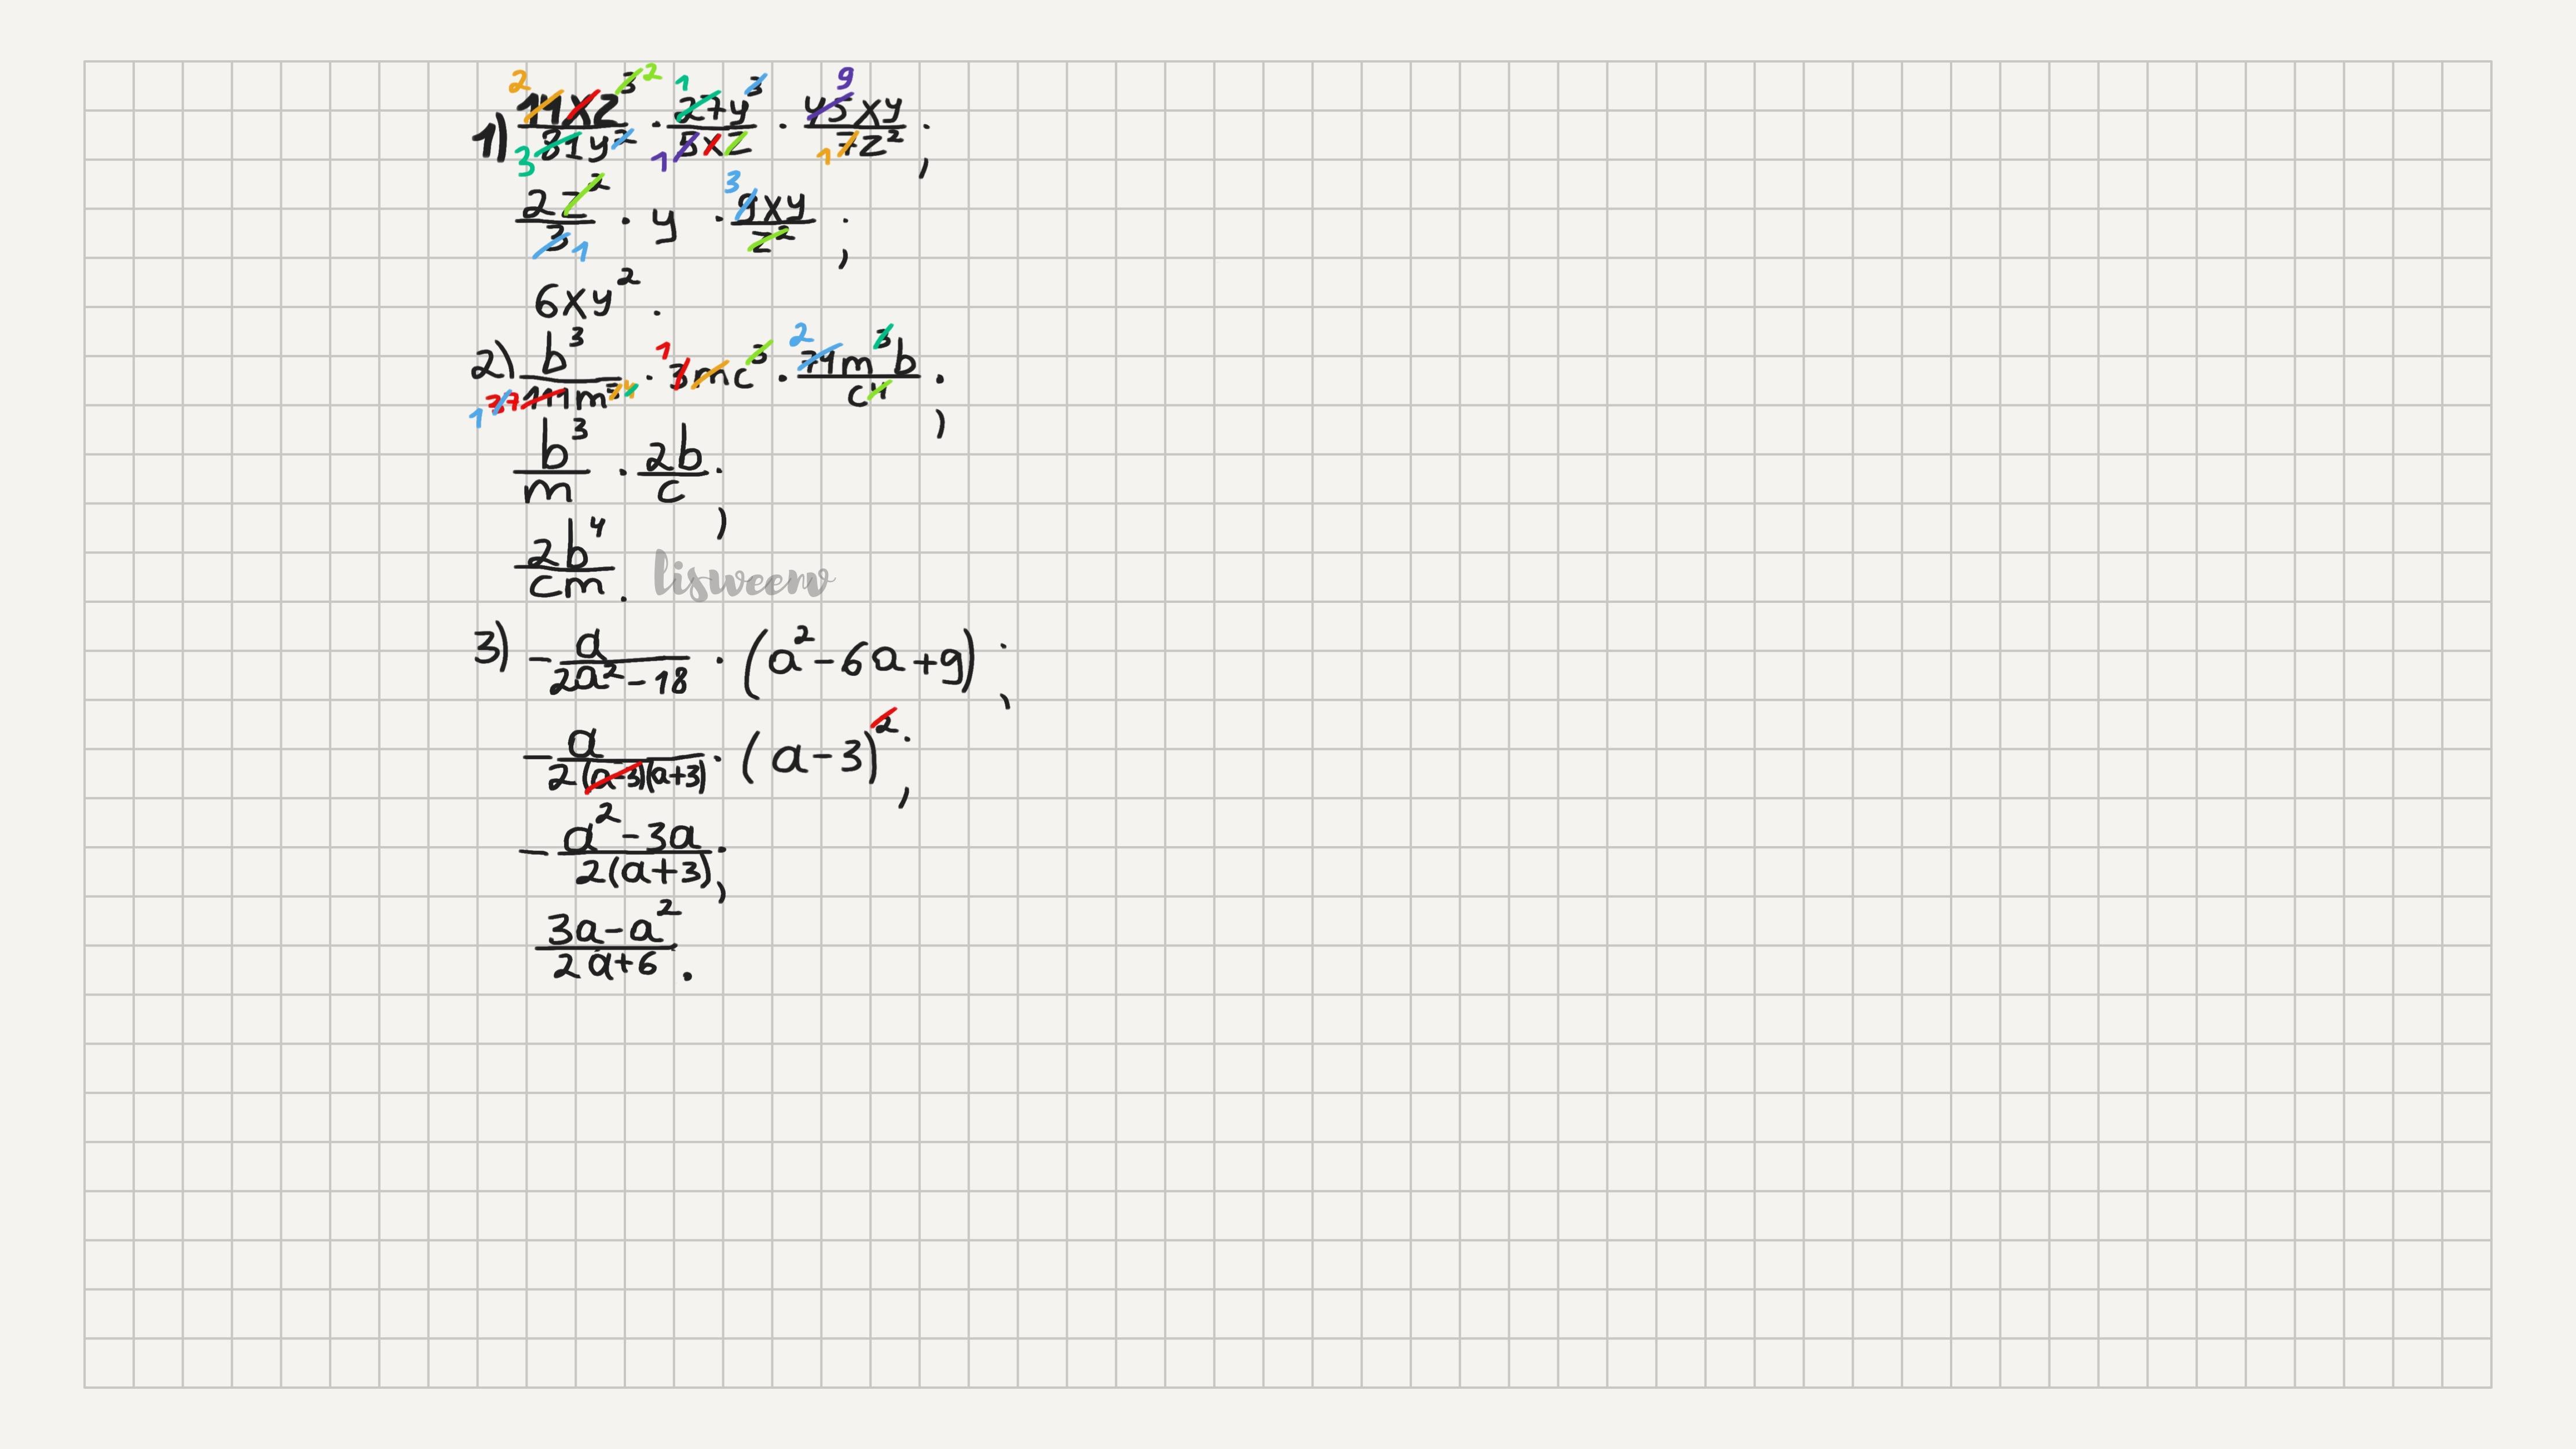 1) 14xz³/81y² · 27y³/5xz · 45xy/7z² ;
2z²/3 · y · 9xy/z² ;
6xy² .
2) b³/111m⁵ · 3mc³ · 74m³b/c⁴ ;
b³/m · 2b/c ;
2b⁴/cm .
lisweenv
3) - a/2a²-18 · (a²-6a+9) ;
- a/2(a-3)(a+3) · (a-3)² ;
- a²-3a/2(a+3) ;
3a-a²/2a+6 .